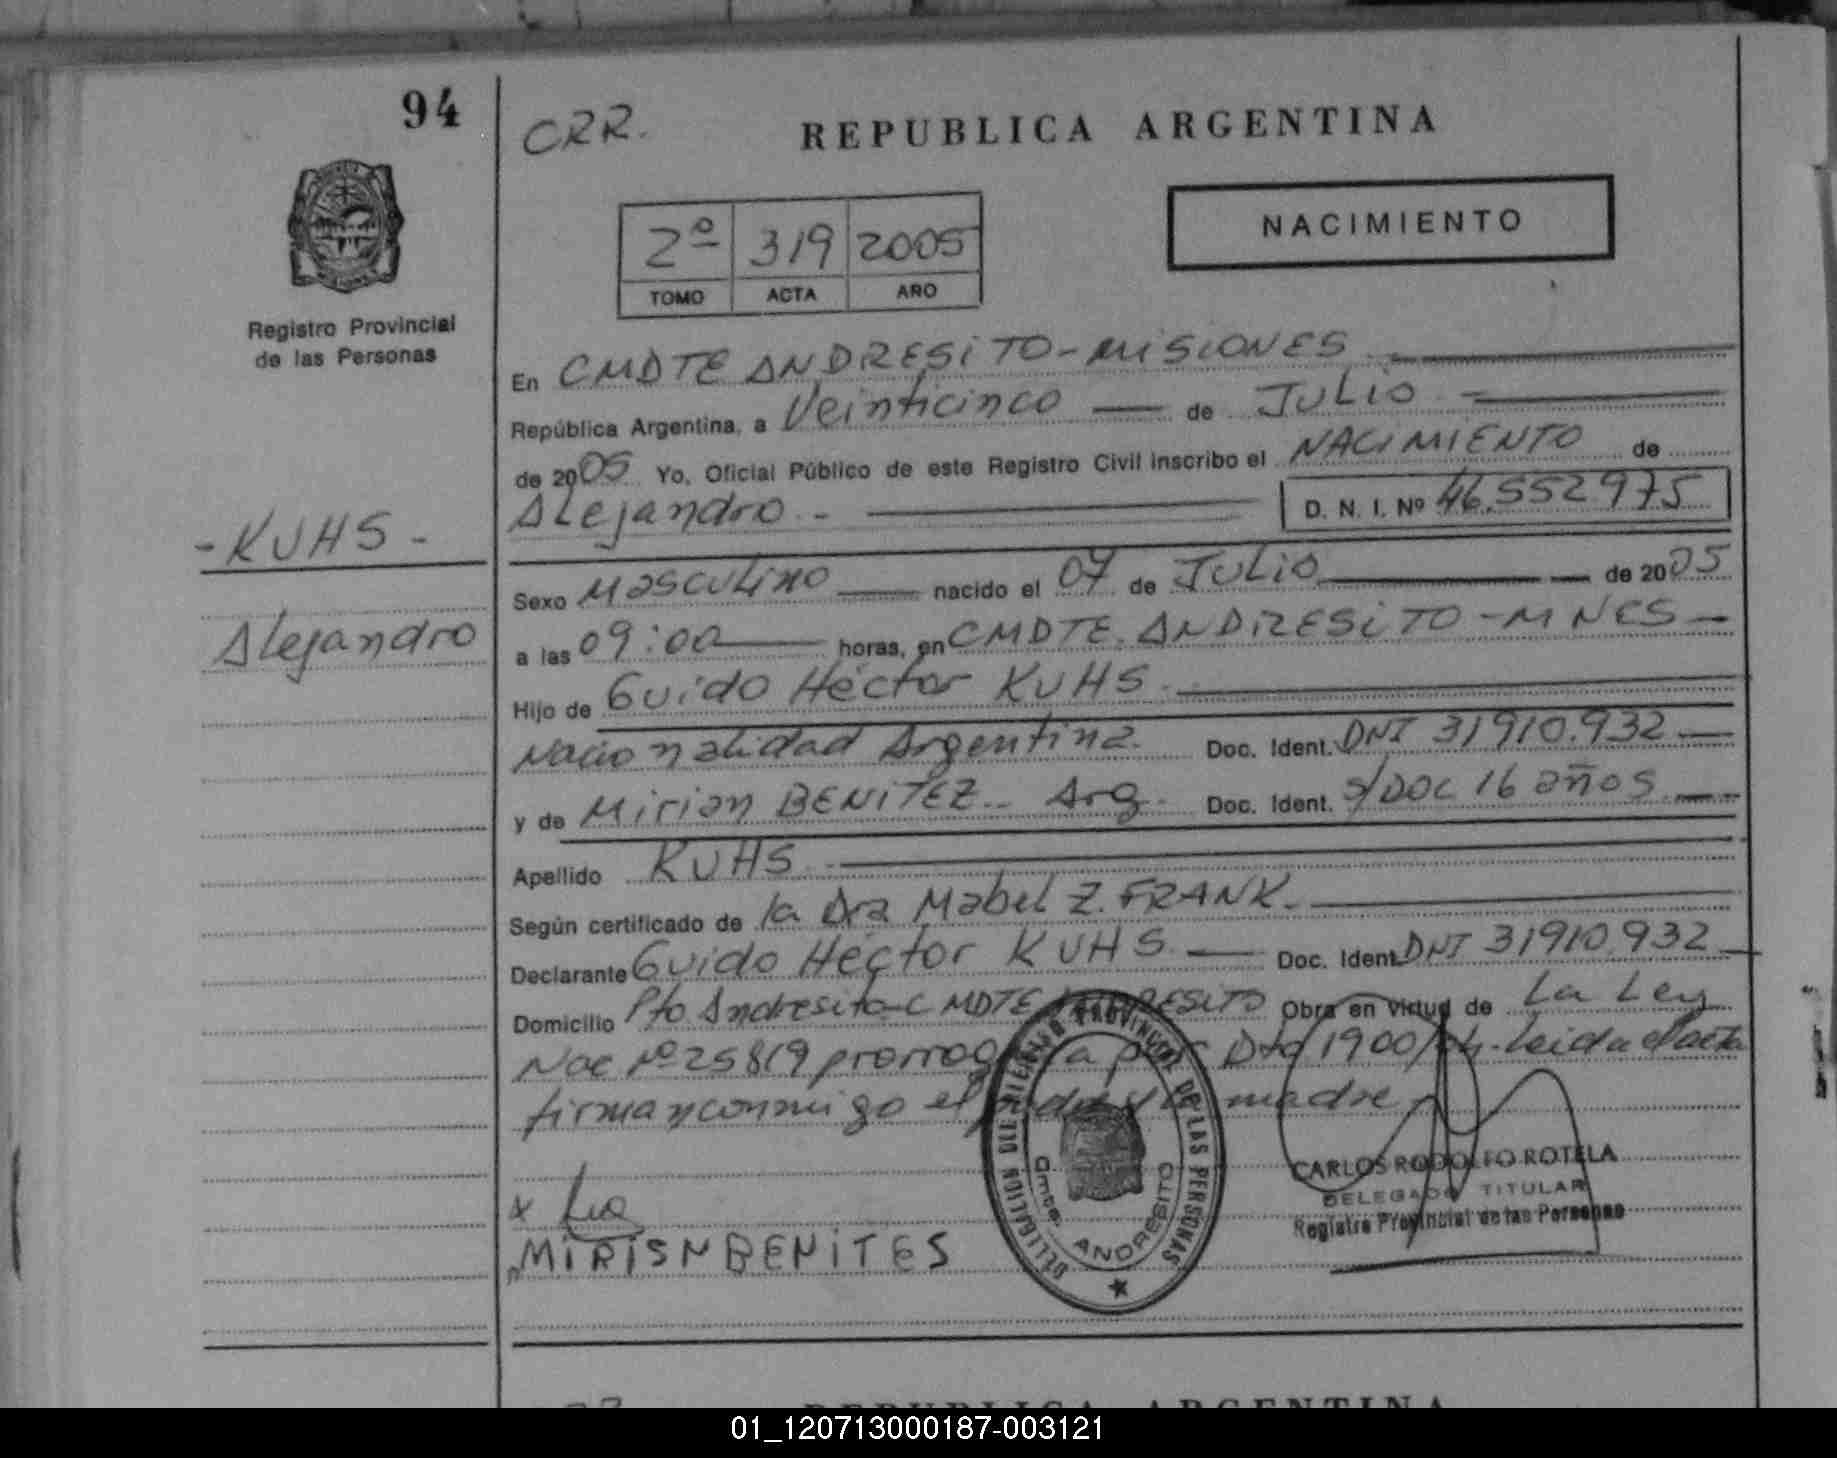 94
CRR.
REPUBLICA ARGENTINA
NACIMIENTO
2º 319 2005
TOMO ACTA ARO
Registro Provincial
de las Personas
En CMDTE ANDRESiTO-MiSiONES
República Argentina, a Veinticinco de JULiO
de 2005 Yo, Oficial Público de este Registro Civil inscribo el NACIMIENTO de
Alejandro.- D. N. I. Nº 46.552.975
-KUHS-
Sexo Masculino nacido el 07 de JULiO de 2005
Alejandro
a las 09:00 horas, en CMDTE. ANDRESiTO-MNES
Hijo de Guido Héctor KUHS.
Nacionalidad Argentina. Doc. Ident. DNI 31910.932
y de Mirian BENiTEZ.- Arg. Doc. Ident. s/DOC 16 años
Apellido KUHS
Según certificado de la Dra Mabel Z. FRANK.
Declarante Guido Héctor KUHS Doc. Ident. DNI 31910.932
Domicilio Pto Andresito-CMDTE ANDRESiTO Obra en virtud de La Ley
Nac Nº 25819 por Dto 1900/04. Leida el acta
firman conmigo el padre y la madre
MiRiAN BENiTES
DELEGACION DEL REGISTRO PROVINCIAL DE LAS PERSONAS
Cmte. ANDRESITO
CARLOS RODOLFO ROTELA
DELEGADO TITULAR
Registro Provincial de las Personas
REPUBLICA ARGENTINA
01_120713000187-003121